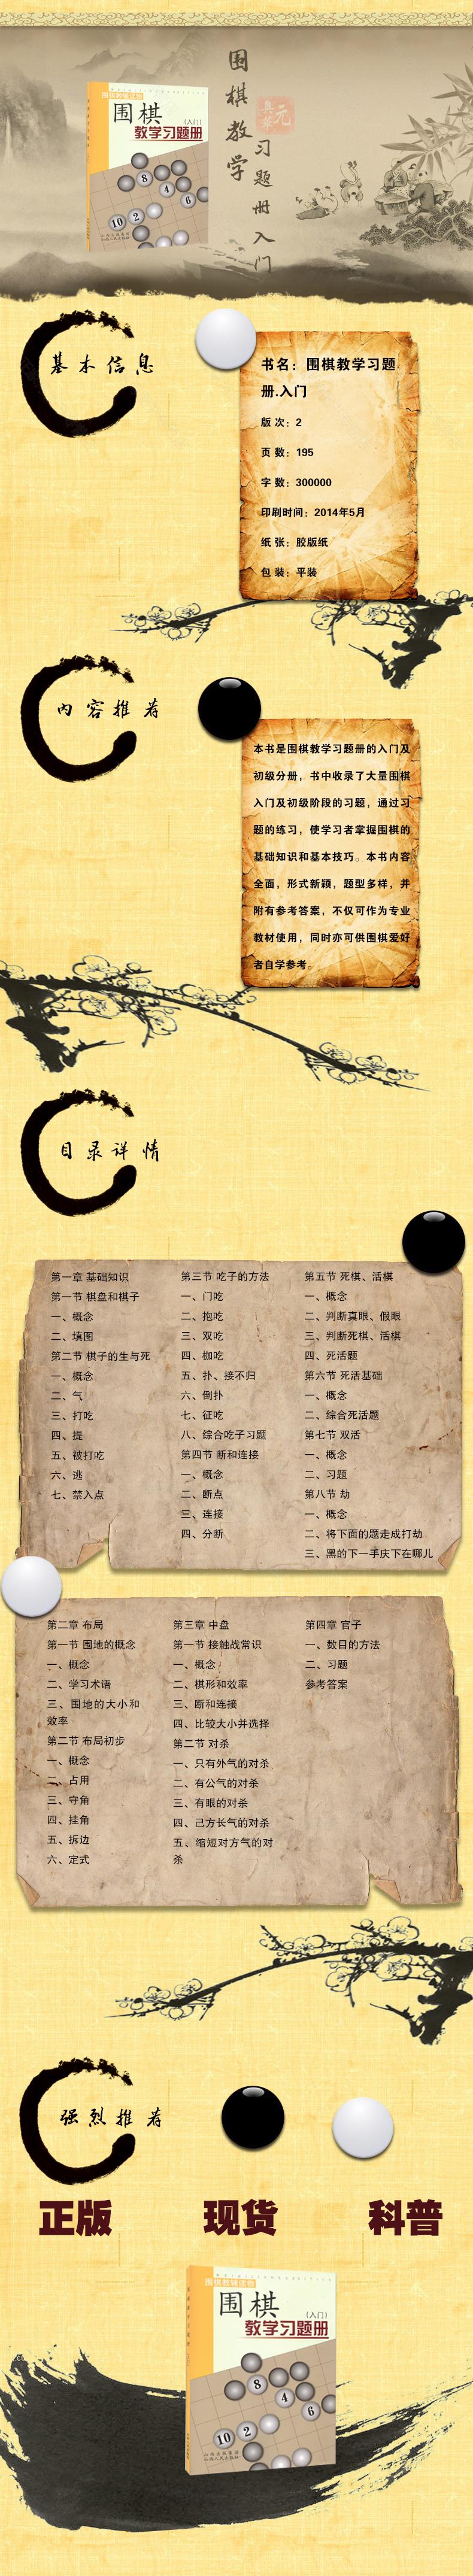 围棋教学
习题册入门
围棋教辅读物
围棋
(入门)
教学习题册
8
4
6
10
2
基本信息
书名：围棋教学习题
册.入门
版 次：2
页 数：195
字 数：300000
印刷时间：2014年5月
纸 张：胶版纸
包 装：平装
内容推荐
本书是围棋教学习题册的入门及
初级分册，书中收录了大量围棋
入门及初级阶段的习题，通过习
题的练习，使学习者掌握围棋的
基础知识和基本技巧。本书内容
全面，形式新颖，题型多样，并
附有参考答案，不仅可作为专业
教材使用，同时亦可供围棋爱好
者自学参考。
目录详情
第一章 基础知识
第一节 棋盘和棋子
一、概念
二、填图
第二节 棋子的生与死
一、概念
二、气
三、打吃
四、提
五、被打吃
六、逃
七、禁入点
第三节 吃子的方法
一、门吃
二、抱吃
三、双吃
四、枷吃
五、扑、接不归
六、倒扑
七、征吃
八、综合吃子习题
第四节 断和连接
一、概念
二、断点
三、连接
四、分断
第五节 死棋、活棋
一、概念
二、判断真眼、假眼
三、判断死棋、活棋
四、死活题
第六节 死活基础
一、概念
二、综合死活题
第七节 双活
一、概念
二、习题
第八节 劫
一、概念
二、将下面的题走成打劫
三、黑的下一手庆下在哪儿
第二章 布局
第一节 围地的概念
一、概念
二、学习术语
三、围地的大小和
效率
第二节 布局初步
一、概念
二、占用
三、守角
四、挂角
五、拆边
六、定式
第三章 中盘
第一节 接触战常识
一、概念
二、棋形和效率
三、断和连接
四、比较大小并选择
第二节 对杀
一、只有外气的对杀
二、有公气的对杀
三、有眼的对杀
四、己方长气的对杀
五、缩短对方气的对
杀
第四章 官子
一、数目的方法
二、习题
参考答案
强烈推荐
正版 现货 科普
围棋教辅读物
围棋
(入门)
教学习题册
8
4
6
10
2